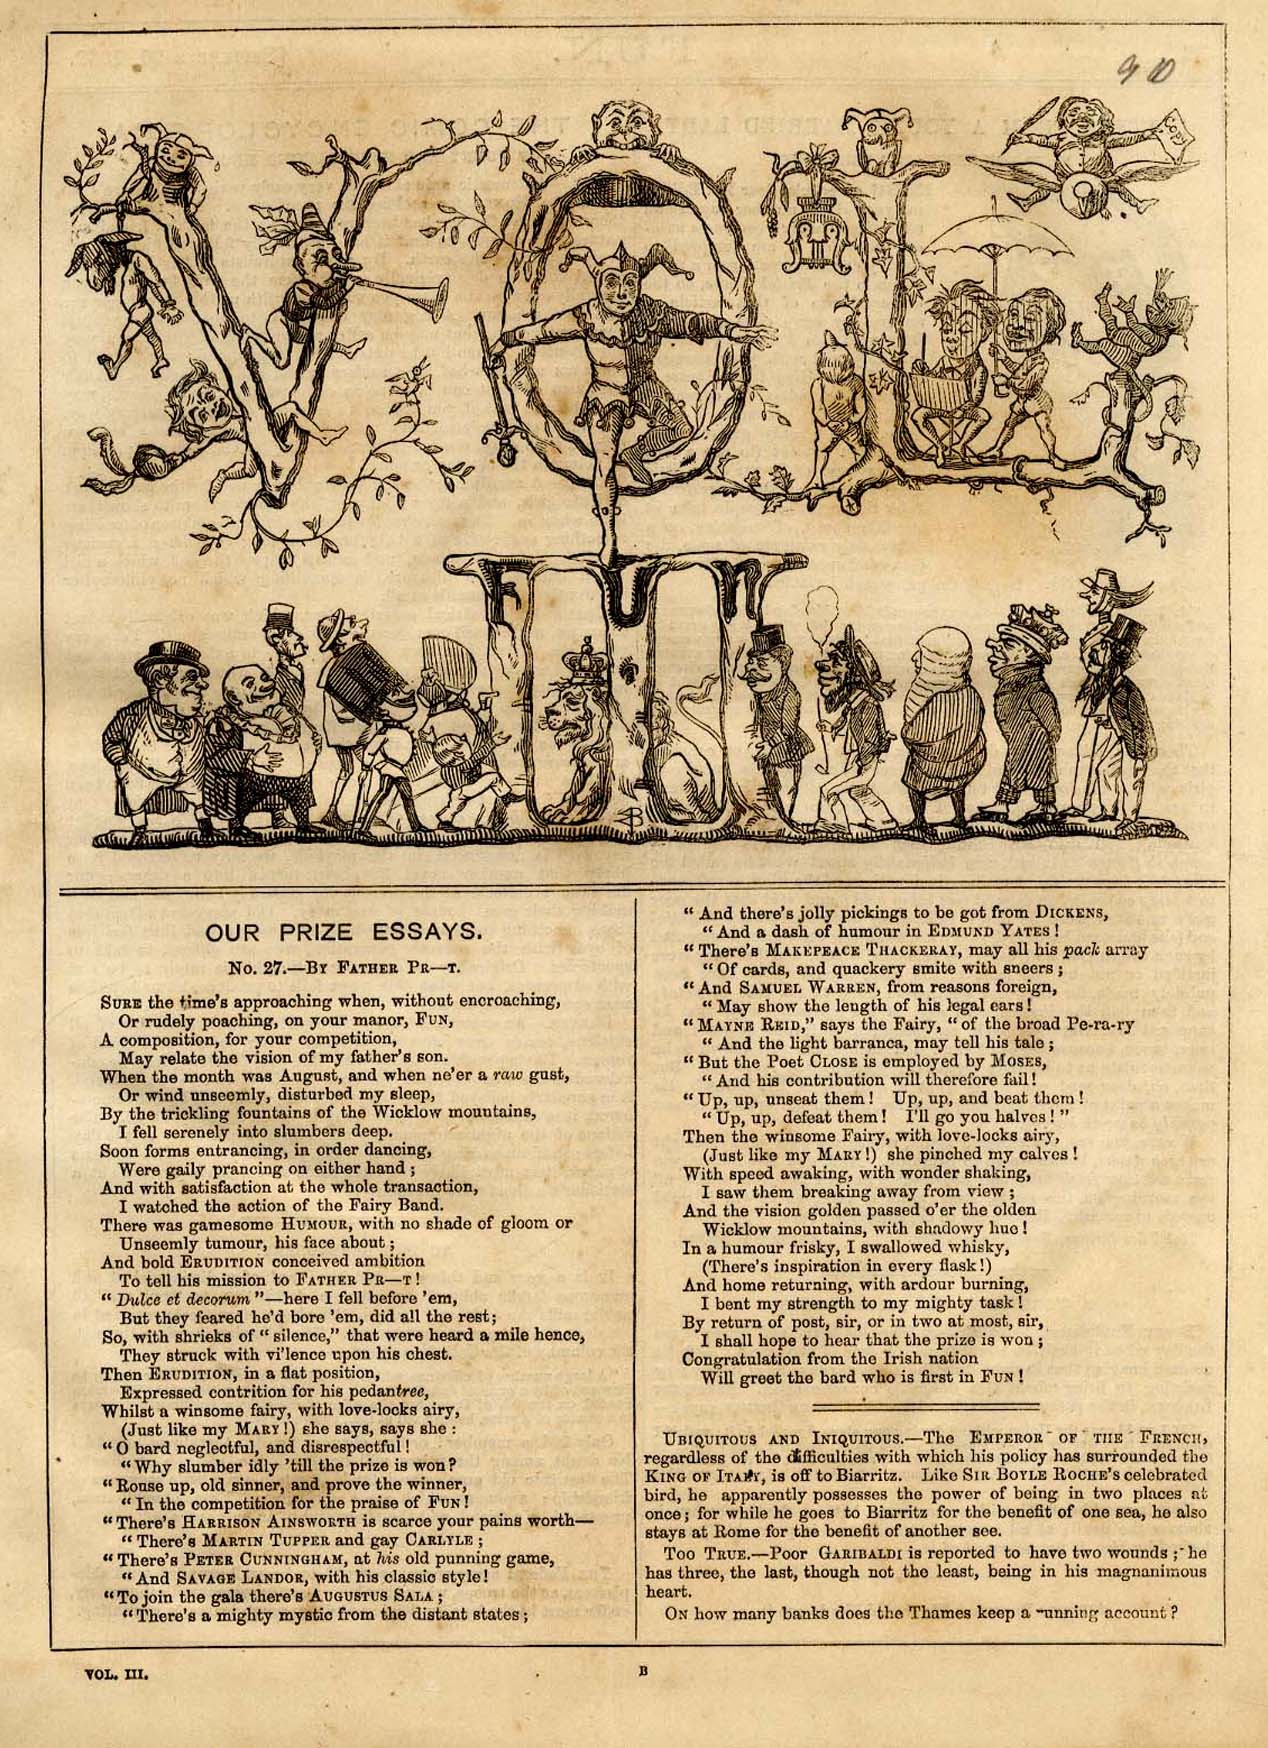 90
COPY
VOL
III
FUN
B
OUR PRIZE ESSAYS.
No. 27.—By Father Pr—t.
Sure the time's approaching when, without encroaching,
Or rudely poaching, on your manor, Fun,
A composition, for your competition,
May relate the vision of my father's son.
When the month was August, and when ne'er a raw gust,
Or wind unseemly, disturbed my sleep,
By the trickling fountains of the Wicklow mountains,
I fell serenely into slumbers deep.
Soon forms entrancing, in order dancing,
Were gaily prancing on either hand;
And with satisfaction at the whole transaction,
I watched the action of the Fairy Band.
There was gamesome Humour, with no shade of gloom or
Unseemly tumour, his face about;
And bold Erudition conceived ambition
To tell his mission to Father Pr—t!
"Dulce et decorum"—here I fell before 'em,
But they feared he'd bore 'em, did all the rest;
So, with shrieks of "silence," that were heard a mile hence,
They struck with vi'lence upon his chest.
Then Erudition, in a flat position,
Expressed contrition for his pedantree,
Whilst a winsome fairy, with love-locks airy,
(Just like my Mary!) she says, says she:
"O bard neglectful, and disrespectful!
"Why slumber idly 'till the prize is won?
"Rouse up, old sinner, and prove the winner,
"In the competition for the praise of Fun!
"There's Harrison Ainsworth is scarce your pains worth—
"There's Martin Tupper and gay Carlyle;
"There's Peter Cunningham, at his old punning game,
"And Savage Landor, with his classic style!
"To join the gala there's Augustus Sala;
"There's a mighty mystic from the distant states;
"And there's jolly pickings to be got from Dickens,
"And a dash of humour in Edmund Yates!
"There's Makepeace Thackeray, may all his pack array
"Of cards, and quackery smite with sneers;
"And Samuel Warren, from reasons foreign,
"May show the length of his legal ears!
"Mayne Reid," says the Fairy, "of the broad Pe-ra-ry
"And the light barranca, may tell his tale;
"But the Poet Close is employed by Moses,
"And his contribution will therefore fail!
"Up, up, unseat them! Up, up, and beat them!
"Up, up, defeat them! I'll go you halves!"
Then the winsome Fairy, with love-locks airy,
(Just like my Mary!) she pinched my calves!
With speed awaking, with wonder shaking,
I saw them breaking away from view;
And the vision golden passed o'er the olden
Wicklow mountains, with shadowy hue!
In a humour frisky, I swallowed whisky,
(There's inspiration in every flask!)
And home returning, with ardour burning,
I bent my strength to my mighty task!
By return of post, sir, or in two at most, sir,
I shall hope to hear that the prize is won;
Congratulation from the Irish nation
Will greet the bard who is first in Fun!
Ubiquitous and Iniquitous.—The Emperor of the French,
regardless of the difficulties with which his policy has surrounded the
King of Italy, is off to Biarritz. Like Sir Boyle Roche's celebrated
bird, he apparently possesses the power of being in two places at
once; for while he goes to Biarritz for the benefit of one sea, he also
stays at Rome for the benefit of another see.
Too True.—Poor Garibaldi is reported to have two wounds; he
has three, the last, though not the least, being in his magnanimous
heart.
On how many banks does the Thames keep a running account?
VOL. III.
B